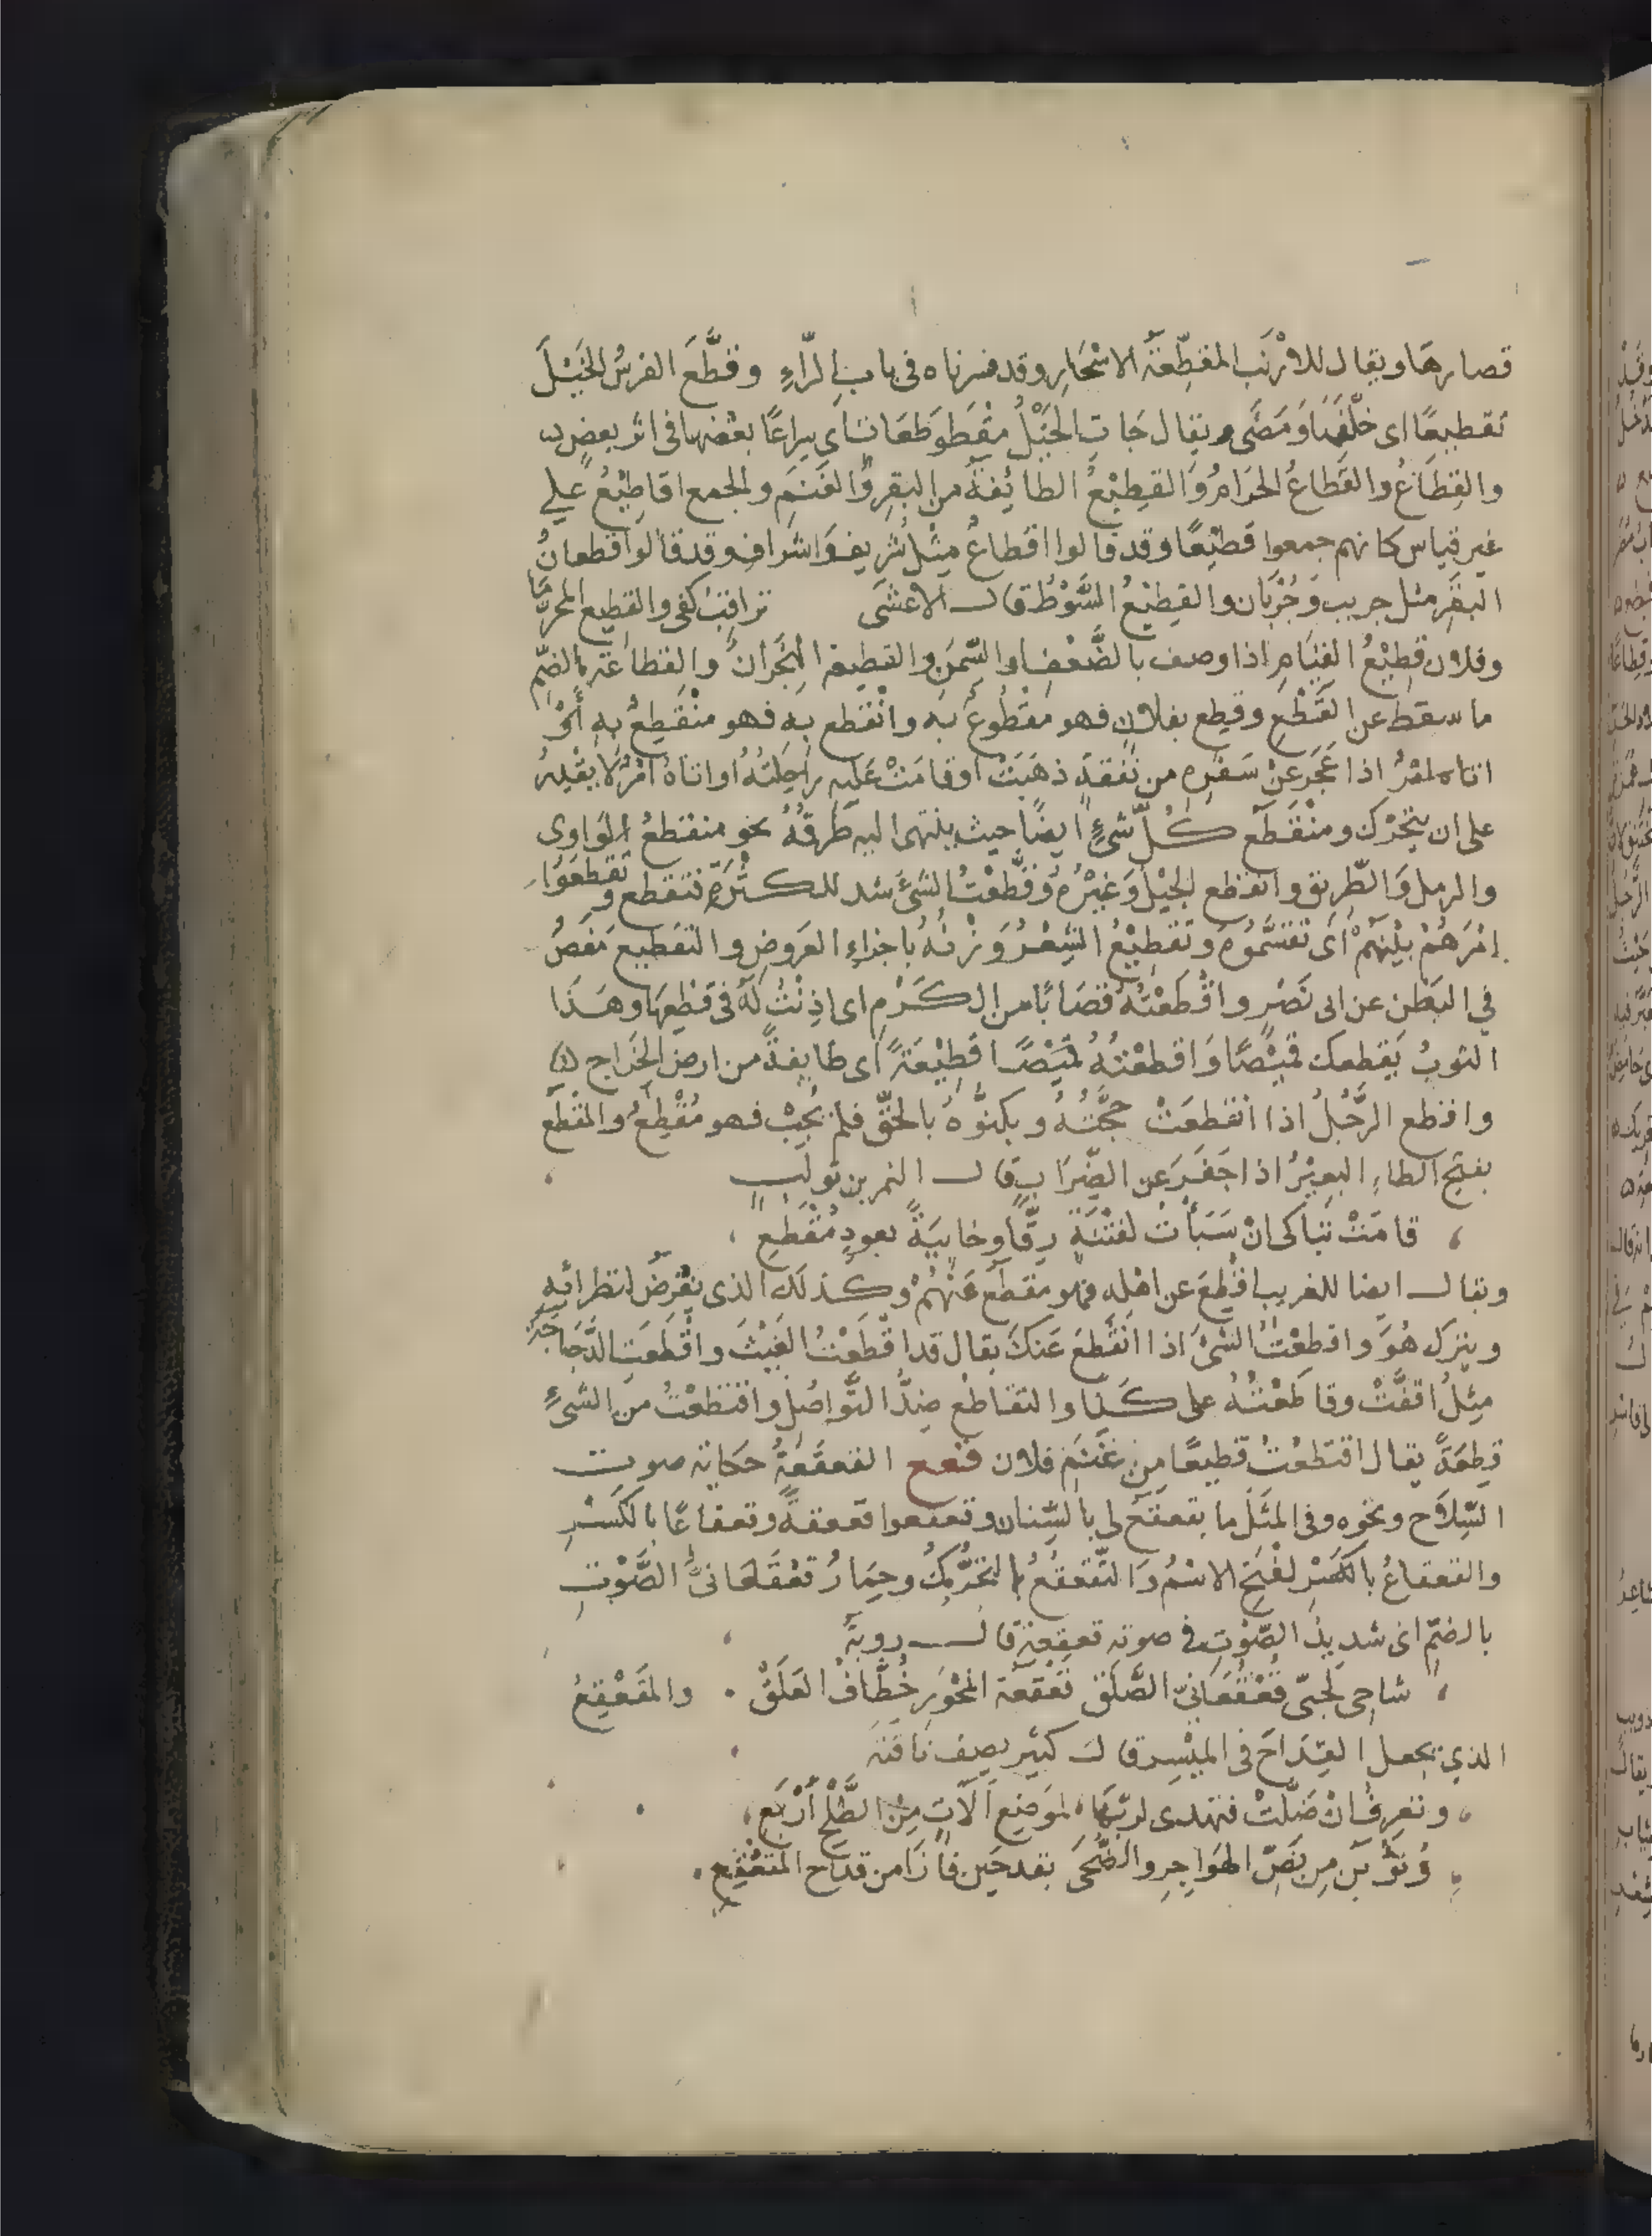 قصارها ويقال للارْنَب المقطِّعَةُ الاسْحَارِ وقد فسرناه فى باب الرّاءِ وقطَّعَ الفرسُ الخَيْلَ
تقطيعًا اى خلّفَهَا وَمَضَى ويقال جَاتِ الخَيْلُ مقْطَوْطعَات اى سِراعًا بعْضها فى اثر بعضٍ
والقِطَاعُ والقَطَاعُ الحَرَامُ وَالقَطِيْعُ الطائِفةُ من البقرِ وَالغَنَمِ والجمع اقاطِيْعُ على
غير قياس كانهم جمعوا قطِيْعًا وقد قالوا اقطاعٌ مِثْل شَرِيف وَاشرَاف وقد قالوا قطعانُ
البقَر مثل جريب وَجُرْبَان والقطِيْعُ السَّوْطُ قال الاعْشَى تراقِبُ كفى والقطيع المحرَّمَا
وفلان قطِيْعُ القيَامِ اذا وصف بالضَّعْفِ اوالسِّمَنِ والقطيعة الهِجْرَانُ والقُطاعَة بالضّمِّ
ما سقط عن القَطْعِ وقُطِع بفلانٍ فهو مقْطُوعٌ بَه وانْقطع به فهو منْقطِعٌ بهِ
اتاه امرٌ اذا عَجَز عَنْ سَفَرِه من نَفَقَةٍ ذهَبَتْ اوقامَتْ عَلَيه رَاحِلتُهُ اواتاهُ امْرٌ لا يقْدِر
على ان يتحَرّك ومنْقَطَع كُلّ شىءٍ ايضًا حيث ينتهى اليه طَرَفُهُ نحو منقطعُ الوَاوى
والرمل وَالطّريق وانقطع الحَبْلُ وَغيْرُهُ وَقطَّعْتُ الشىَّ شدد للكثْرَةِ فتقطع وتقطعَوُا
امْرَهُمْ بيْنهُمْ اى تقسَّمُوهُ وتقطِيْعُ الشِعْرُ وَزْنُهُ باجزاءِ العَروضِ والتقطيع مَغصٌ
فى البَطْن عن ابى نصْر واقْطَعْتُهُ قضبَانًا من الكَرْمِ اى اذِنْتُ لَهُ فى قطْعِهَا وهَذا
الثوبُ يَقطعك قميْصًا وَاقطعْتُهُ قطِيْعَةً اى طايفةً من ارض الخَرَاج
واقطع الرَّجُلُ اذا انقطعَتْ حجَّتُهُ وبكتوُهُ بالحَقّ فلم يُجِبْ فهو مُقْطِعٌ والمقْطَع
بفتح الطاءِ البعِيْرُ اذا جَفَرَ عن الضِّرَابِ قال النمر بن تولب
قامَتْ تباكى انْ سَبَأْتُ لفتْيَةٍ زِقًّا وخابيَةً بعودٍ مُقْطَعِ
ويقال ايضا للغريب اقْطِعَ عن اهْلِه فهو مقطَعٌ عَنْهُمْ وكذلك الذى يُفْرَضُ لنظرائِه
ويترك هُوَ واقطعْتُ الشَىَّ اذا انْقطع عَنكَ يقال قد اقْطَعْتُ الغَيْثَ واقْطعَتِ الدَّجَاجَة
مِثْلُ اقفَّتْ وقاطَعْتُهُ على كَذا والتقاطع ضِدُّ التَّواصُل واقتطعْتُ مَن الشىءِ
قِطعَةً يقال اقتَطعْتُ قطيعًا من غَنَمِ فلان قعع القعقَعَةُ حكاية صوت
السِّلاح ونحوه وفى المثَل ما يقعقَع لى بالشِنان وقعقعوا قعقعةً وقعقاعًا بالكَسْرِ
والقعقاعُ بالفتح الاسْمُ وَالتَّقعقُعُ التحَرُّكُ وحِمَارٌ قُعْقعَانىُّ الصَّوْتِ
بالضمّ اى شديدُ الصّوْتِ فى صوته قعقعة قال روبة
شاحِى لَحْيَى قُعْقُعَانىّ الصَّلَق قعقعَةَ المِحْوَر خُطَّافَ العَلَقْ والمقَعْقِعُ
الذي يجعل القِدَاحَ فى المَيْسِر قال كثير يصِف نَاقتَهُ
وتعرِفُ انْ ضَلَّتْ فتهدى لربّهَا لموَضِع آلاتٍ مِنْ الطَّلْحِ أَرْبَعِ
وَتُوَبَّن مِن نَصِّ الهَواجِرِ والضُّحَى بقدحَين فازَا من قداح المقعْقِعِ